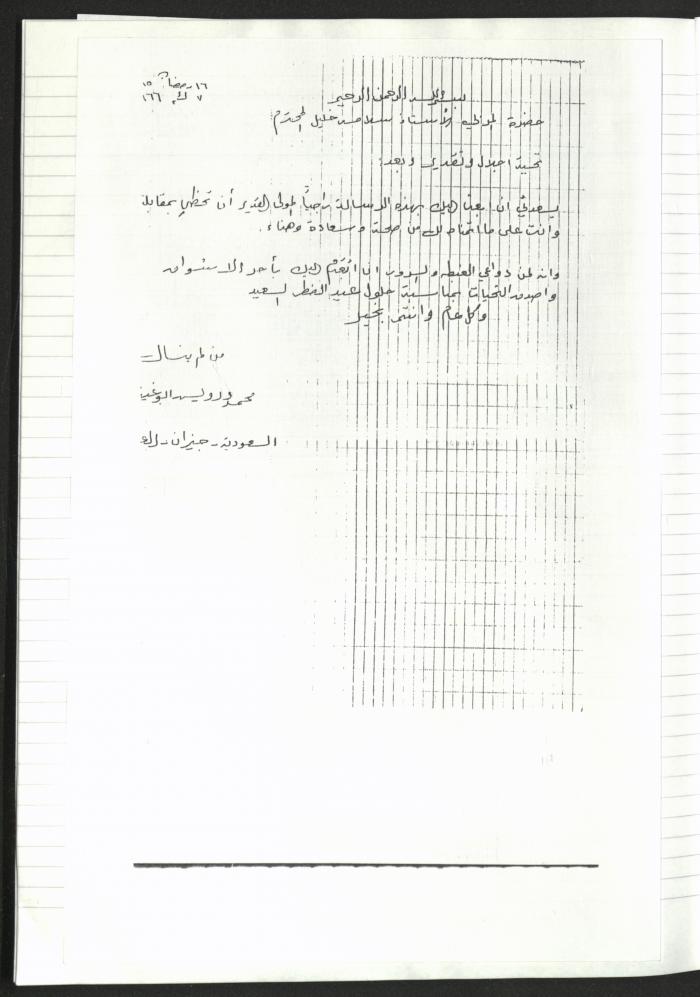 ١٦ رمضان
بسم الله الرحمن الرحيم
حضرة الوالي الأستاذ سلامه خليل المحترم
تحية اجلال وتقدير وبعد:
يسعدني ان ابعث اليك بهذه الرسالة راجياً المولى القدير أن تحظى بمقابلة
وانت على ما اتمناه لك من صحة وسعادة وهناء.
وانه لمن دواعي الغبطه والسرور ان اتقدم اليك بأحر الاشواق
واصدق التحيات بمناسبة حلول عيد الفطر السعيد
وكل عام وانتم بخير
من لم ينساك
محمد
السعودية - جيزان